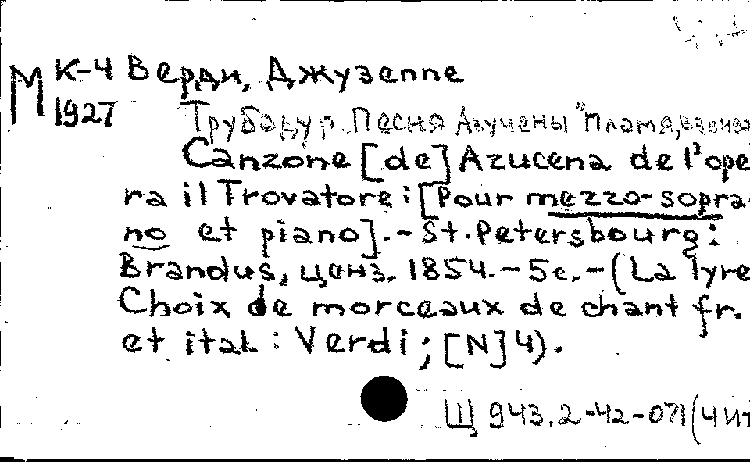 М К-4 Верди, Джузеппе
1927 Трубадур. Песня Азучены "Пламя,
Canzone [de] Azucena de l'ope
ra il Trovatore : [Pour mezzo-sopra-
no et piano]. - St. Petersbourg :
Brandus, ценз. 1854. - 5с. - (La lyre
Choix de morceaux de chant fr.
et ital : Verdi ; [N] 4).
Щ 943.2-42-071 (4 ит